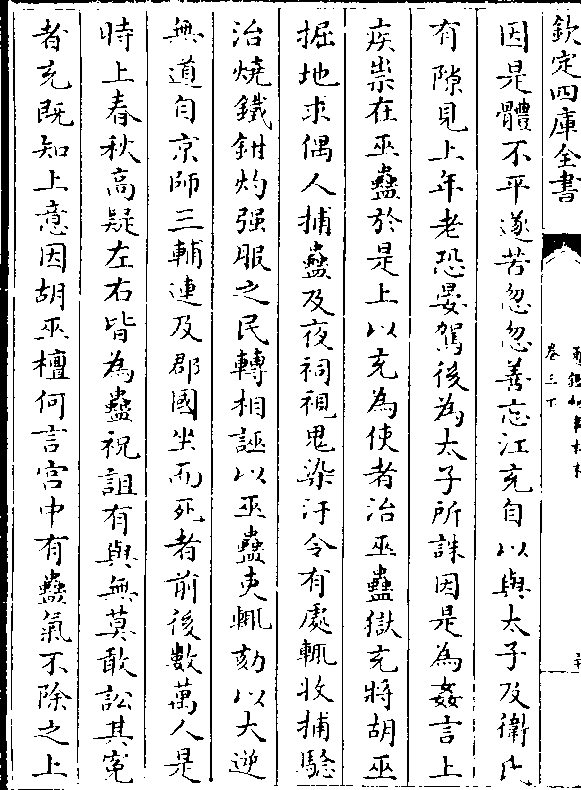 欽定四庫全書
卷三下
因是體不平遂苦忽忽善忘江充自以與太子及衛氏
有隙見上年老恐晏駕後為太子所誅因是為姦言上
疾祟在巫蠱於是上以充為使者治巫蠱獄充將胡巫
掘地求偶人捕蠱及夜祠視鬼染汙令有處輒收捕驗
治燒鐵鉗灼强服之民轉相誣以巫蠱吏輒劾以大逆
無道自京師三輔連及郡國坐而死者前後數萬人是
時上春秋高疑左右皆為蠱祝詛有與無莫敢訟其寃
者充既知上意因胡巫檀何言宫中有蠱氣不除之上